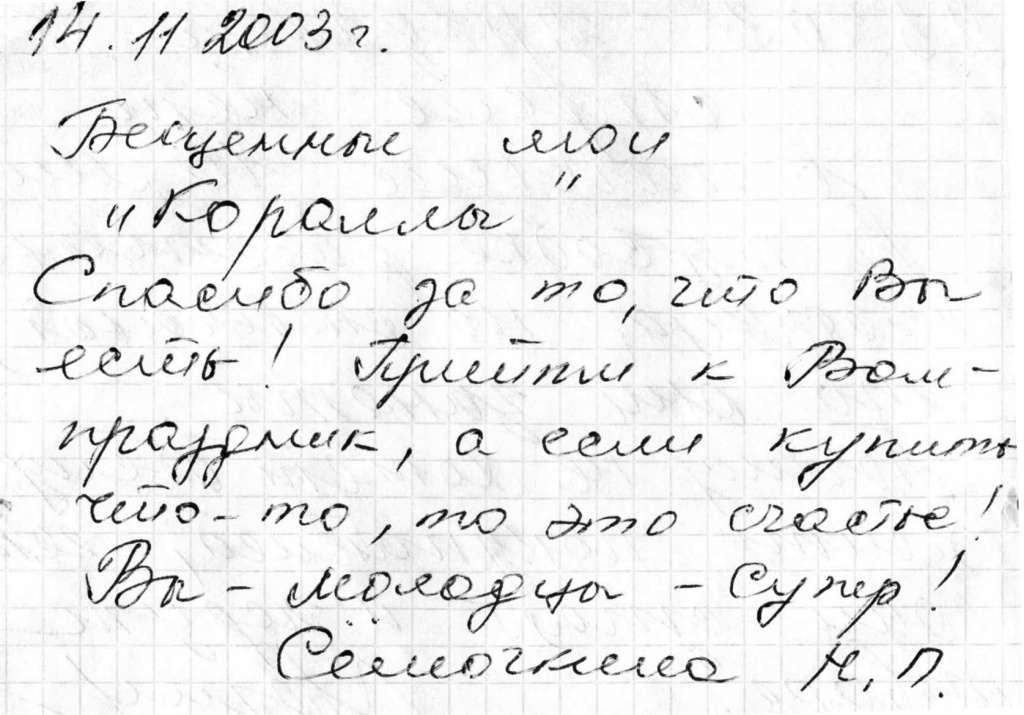 14.11 2003 г.
Бесценные мои
"Кораллы"
Спасибо за то, что Вы
есть! Прийти к Вам -
праздник, а если купить
что-то, то это счастье!
Вы - молодцы - Супер!
Сёмочкина Н.П.